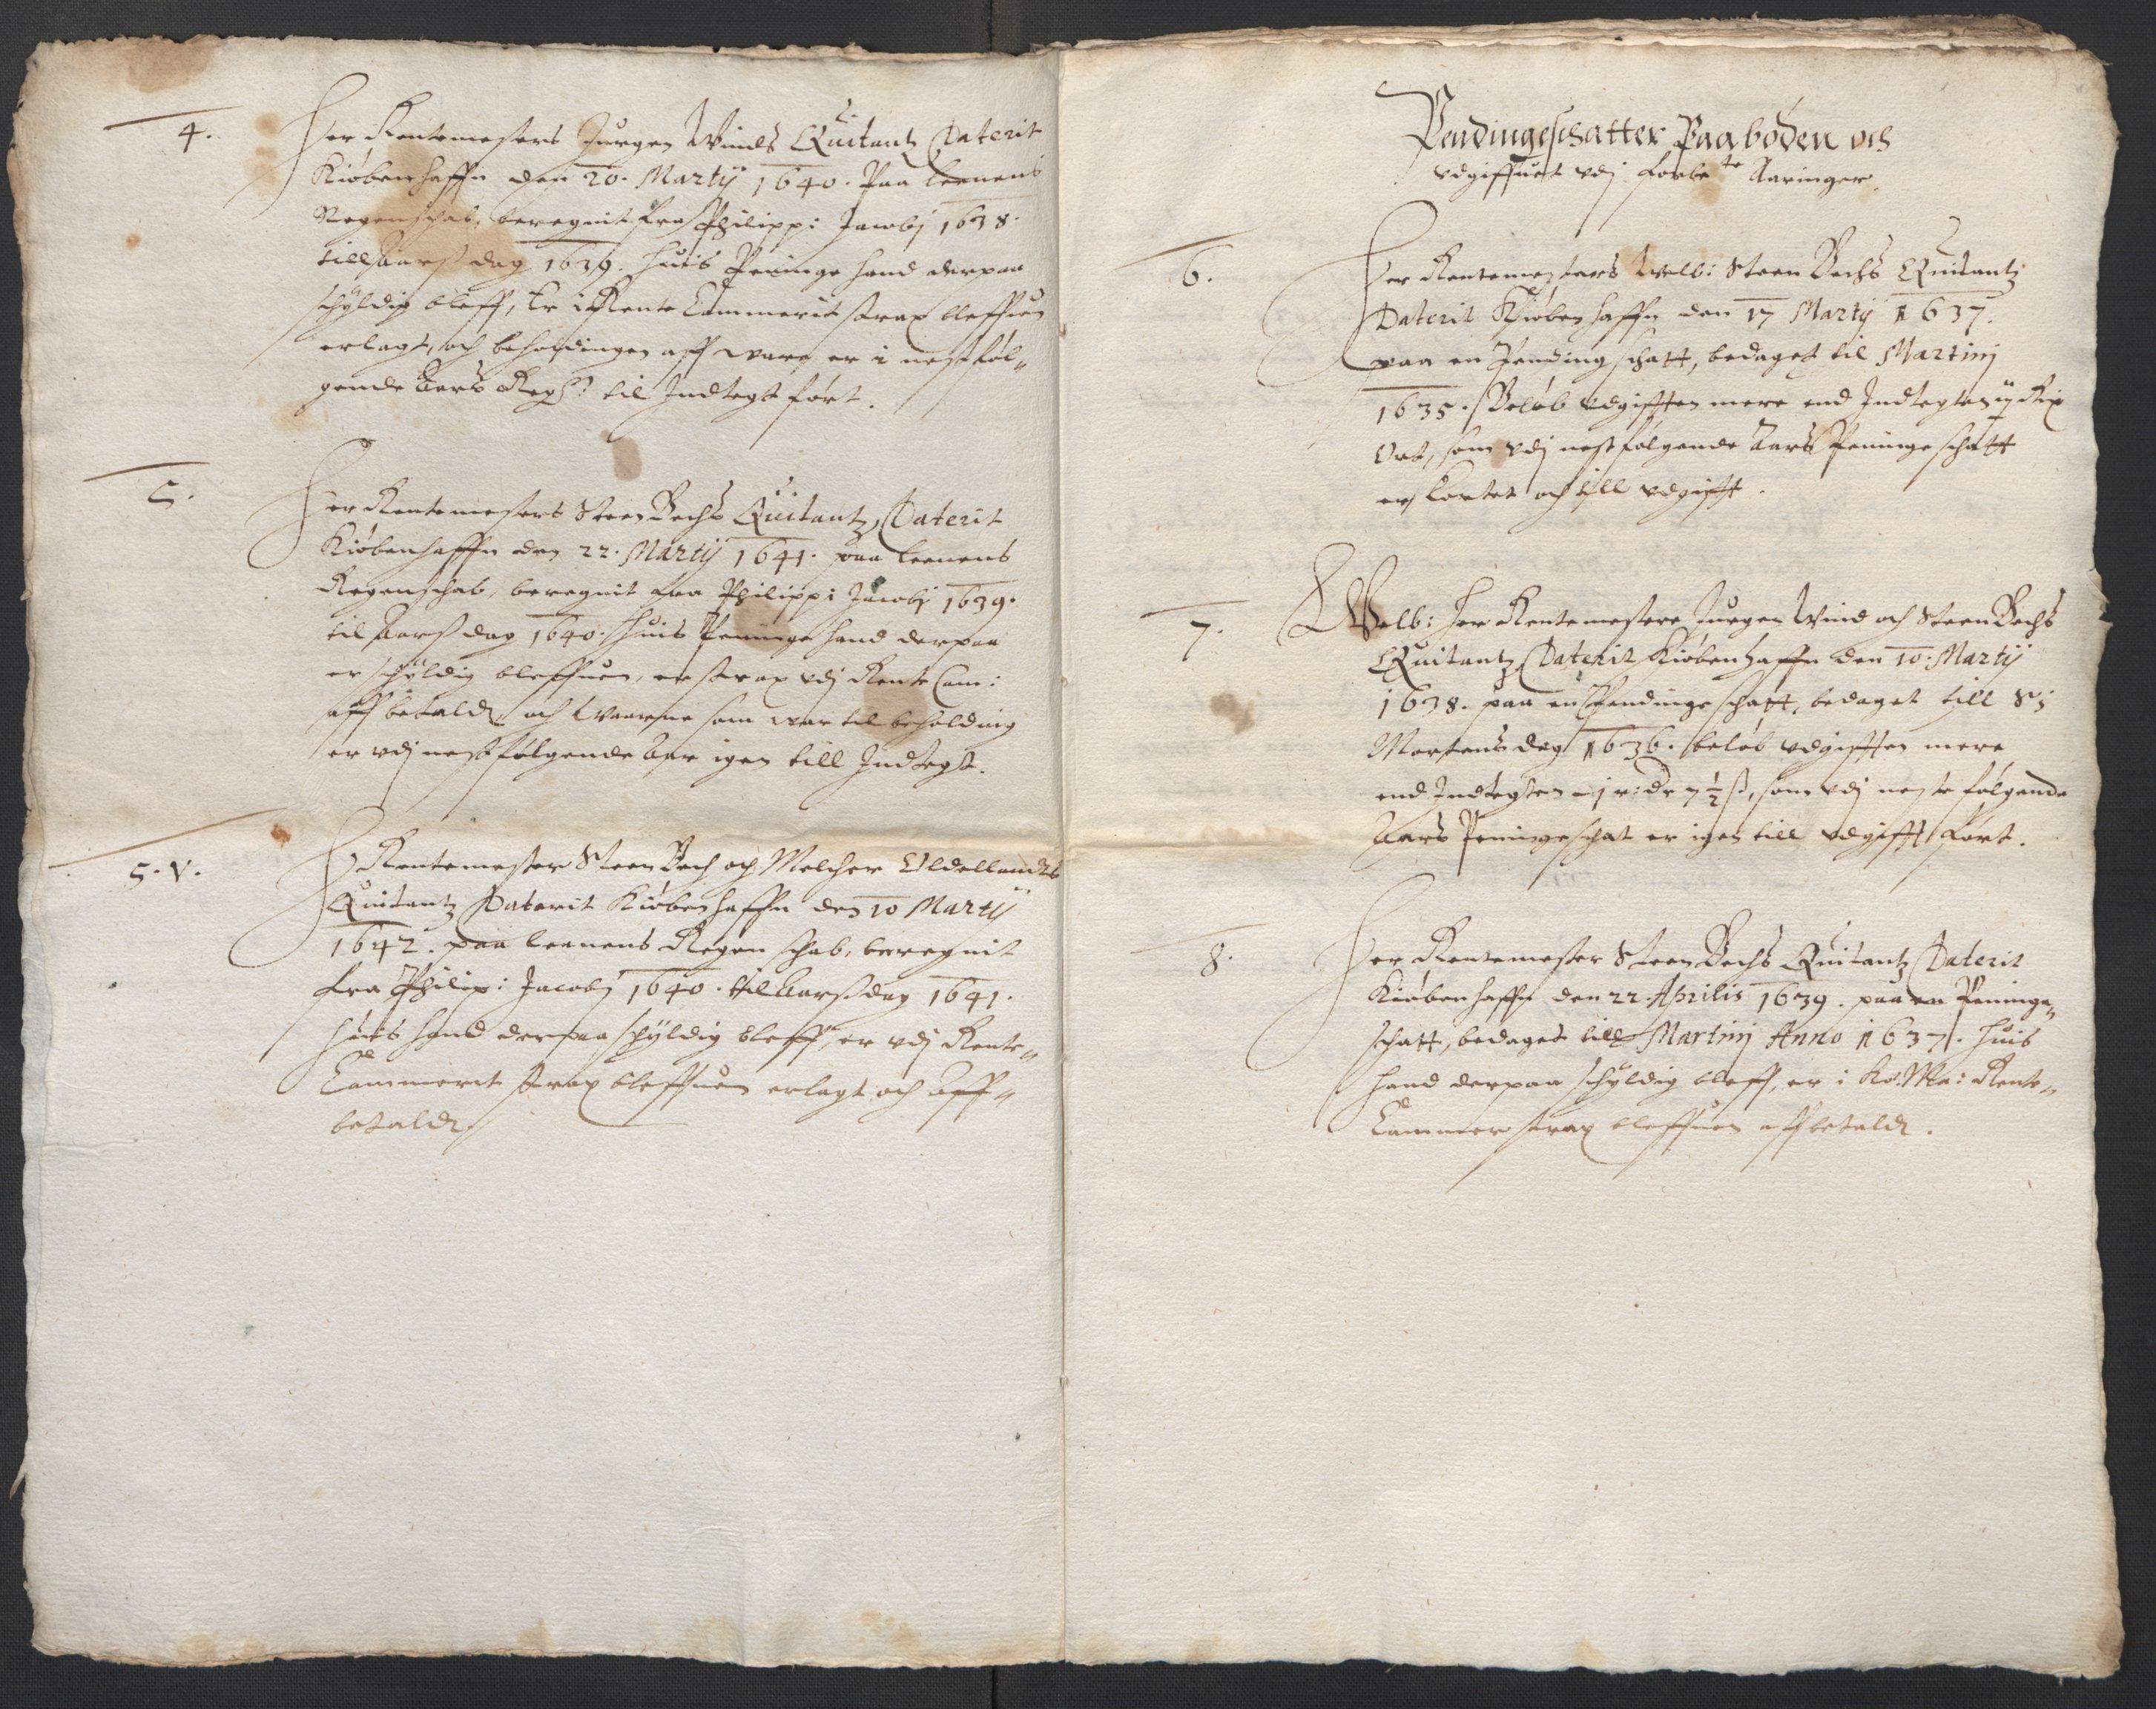 4.
Her Rentemesters Jurgen Winds Quitantz Daterit
Kiøbenhaffn den 20. Martij 1640. Paa Leenens
Regenschab, beregnit fra Philippi Jacobj 1638.
till Aarß dag 1639. huis Peninge hand derpaa
schÿldig bleff, Er i Rente Cammerit strax bleffuen
erlagt, och beholdingen aff ware er i nestføl-
gende Aars Regsk: til Indtegt ført.
5.
Her Rentemesters Steen Bechs Quitantz, Daterit
Kiøbenhaffn den 22. Martij 1641. paa Leenens
Regenschab, beregnit fra Philippi Jacobj 1639.
til Aarß dag 1640. huis Peninge hand derpaa
er schÿldig bleffuen, er strax vdj Rente Cam:
aff betald, och Waarne som war til beholding
er vdj nestfølgende Aar igen till Indtegt.
5. V.
H Rentemester Steen Bech och Melcher Oldellandts
Quitantz Daterit Kiøbenhaffn den 10 Martij
1642. paa Leenens Regenschab, beregnit
fra Philip: Jacobj 1640. til Aarß dag 1641.
huis hand derpaa schÿldig bleff, er vdj Rente-
Cammerit strax bleffuen erlagt och Aff-
betald.
Pendingeschatter Paabøden och
vdgiffuet vdj forbete Aaringer.
6.
Her Rentemesters Welb: Steen Bechs Quitantz
Daterit Kiøbenhaffn den 17 Martij 1637.
paa en Pendingschatt, bedaget til Martinj
1635. Beløb vdgifften mere end Indtegten ij Rix
Ort, som vdj nestfølgende Aars Peningeschatt
er kortet och till vdgifft.
7.
Welb: Her Rentemestere Jurgen Wind och Steen Bechs
Quitantz Daterit Kiøbenhaffn den 10. Martij
1638. paa en Pendingeschatt, bedaget till St:
Mortens dag 1636. beløb vdgifften mere
end Indtegten - j r: dr 7½ ß, som vdj neste følgende
Aars Peningeschat er igen till vdgifftført.
8.
Her Rentemester Steen Bechs Quitantz Daterit
Kiøbenhaffn den 22. Aprilis 1639. paa en Peninge-
schatt, bedaget till Martinj Anno 1637. huis
hand derpaa schÿldig bleff, er i Ko: Ma: Rente-
Cammer strax bleffuen affbetald.